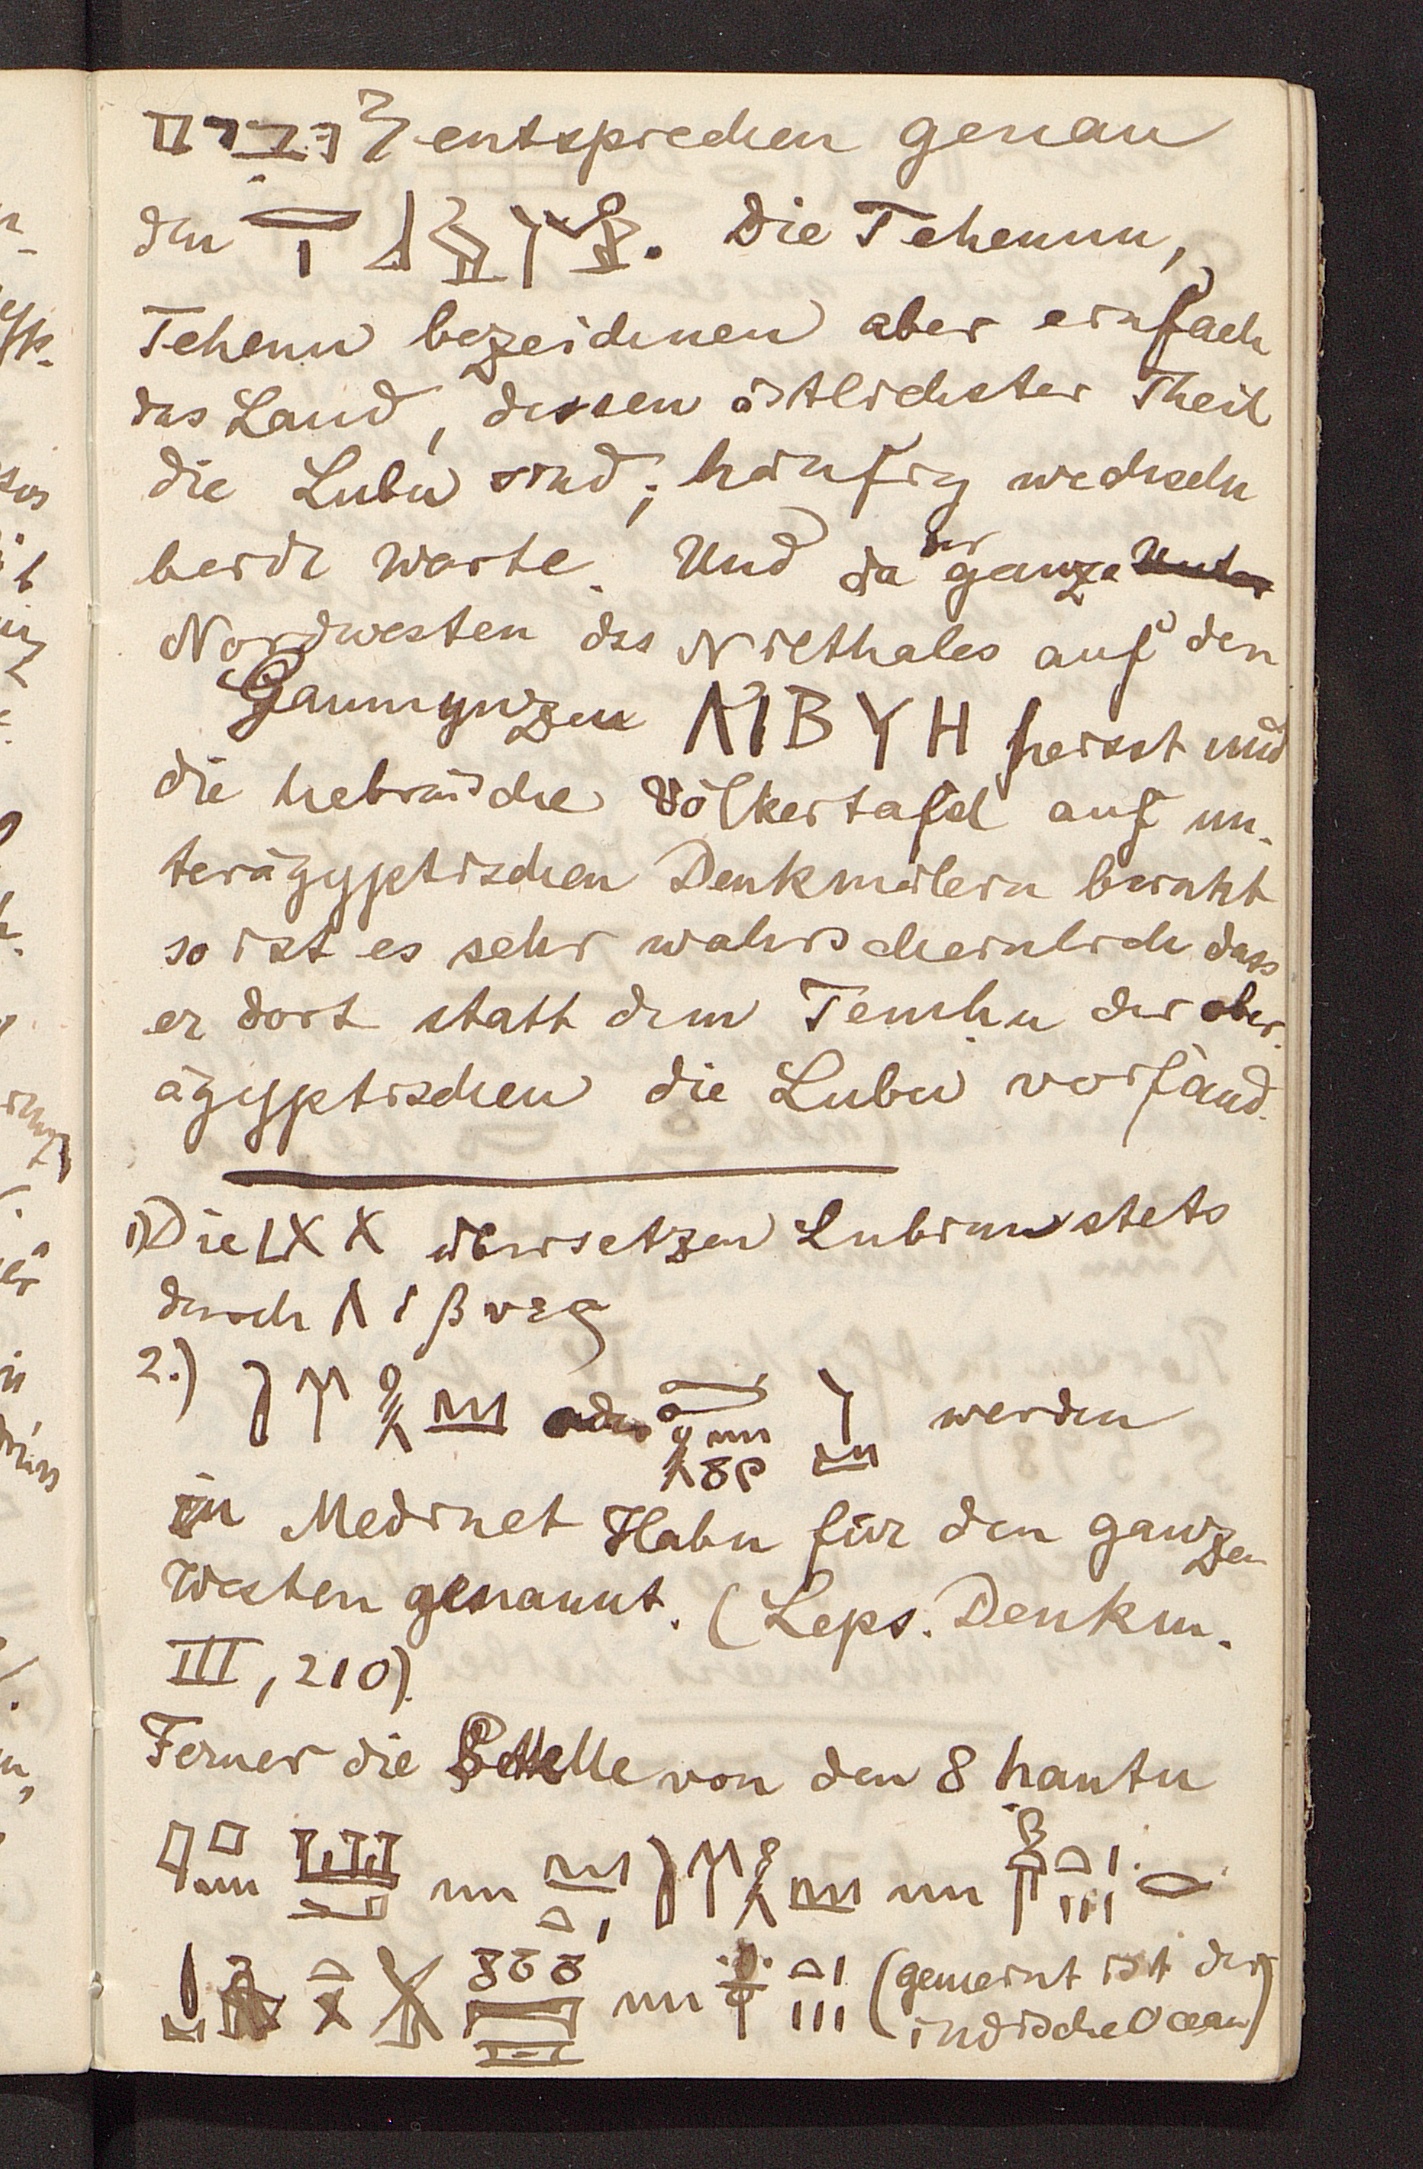 entsprechen genau
den . Die Tehennu,
Tehenu bezeichnen aber einfach
das Land, dessen östlichster Theil
die Lubu sind; häufig wechseln
beide Worte. Und da der ganze
Nordwesten des Nilthales auf den
Gaumünzen ΛΙΒΥΗ heisst und
die hebräische Völkertafel auf un-
terägyptischen Denkmälern beruht
so ist es sehr wahrscheinlich dass
er dort statt dem Temhu der ober-
ägyptischen die Lubu vorfand.
1) Die LXX übersetzen Lubim stets
durch Λιβυες
2.) oder werden
in Medinet Habu für den ganzen
Westen genannt. (Leps. Denkm.
III, 210).
Ferner die Stelle von den 8 hantu
(gemeint ist der
indische Ocean)